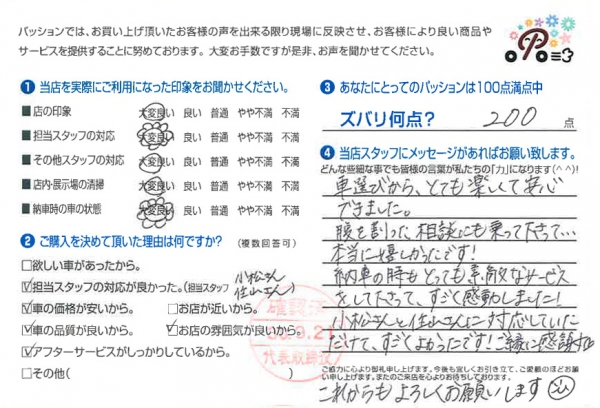 パッションでは、お買い上げ頂いたお客様の声を出来る限り現場に反映させ、お客様により良い商品や
サービスを提供することに努めております。大変お手数ですが是非、お声を聞かせてください。
❶ 当店を実際にご利用になった印象をお聞かせください。
■ 店の印象 大変良い 良い 普通 やや不満 不満
■ 担当スタッフの対応 大変良い 良い 普通 やや不満 不満
■ その他スタッフの対応 大変良い 良い 普通 やや不満 不満
■ 店内・展示場の清掃 大変良い 良い 普通 やや不満 不満
■ 納車時の車の状態 大変良い 良い 普通 やや不満 不満
❷ ご購入を決めて頂いた理由は何ですか? (複数回答可)
□欲しい車があったから。
☑担当スタッフの対応が良かった。(担当スタッフ 小松さん 住山さん)
☑車の価格が安いから。 □お店が近いから。
☑車の品質が良いから。 ☑お店の雰囲気が良いから。
☑アフターサービスがしっかりしているから。
□その他( )
確認済
9.21
代表取締役
❸ あなたにとってのパッションは100点満点中
ズバリ何点? 200 点
❹ 当店スタッフにメッセージがあればお願い致します。
どんな些細な事でも皆様の言葉が私たちの「力」になります(^^)!
車選びから、とても楽しくて安心
できました。
腹を割った相談にも乗って下さて…
本当に嬉しかったです!
納車の時もとっても素敵なサービス
をして下さって、すごく感動しました!
小松さんと住山さんに対応していた
だけて、すごくよかったです!ご縁に感謝
ご協力に心より御礼申し上げます。今後も宜しくお引き立て、ご愛顧のほどお願
い申し上げます。またのご来店を心よりお待ちしております。
これからもよろしくお願いします